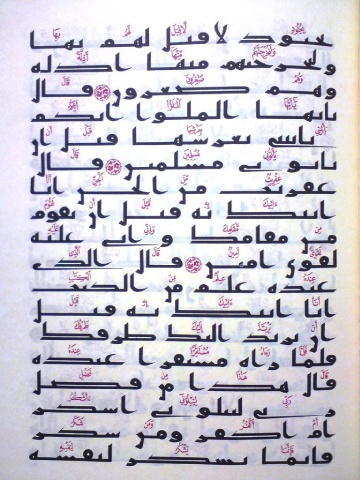 بجنود لا قبل لهم بها
ولنخرجنهم منها اذلة
وهم صغرون قال
يايها الملوا ايكم
ياتيني بعرشها قبل ان
ياتوني مسلمين قال
عفريت من الجن انا
اتيك به قبل ان تقوم
من مقامك واني عليه
لقوي امين قال الذي
عنده علم من الكتب
انا اتيك به قبل
ان يرتد اليك طرفك
فلما راه مستقرا عنده
قال هذا من فضل
ربي ليبلوني ءاشكر
ام اكفر ومن شكر
فانما يشكر لنفسه